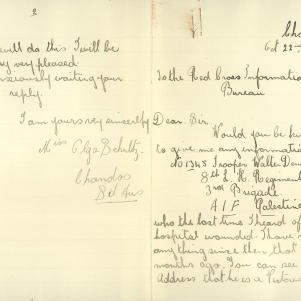 Cha
Oct 22nd
To the Red Cross Information
Bureau
Dear Sir.
Would you be kin
to give me any information
No 1345 Trooper
8th L. H. Regiment
3rd Brigade.
A I F Palestine
who the last time I heard of
hospital wounded. I have n
anything since then that
months ago. You can see
Address that he is a
2
will do this I will be
very very pleased
anxiously waiting your
reply.
I am yours very sincerely
Miss Olga Schultz.
Chandos
Sd Aus